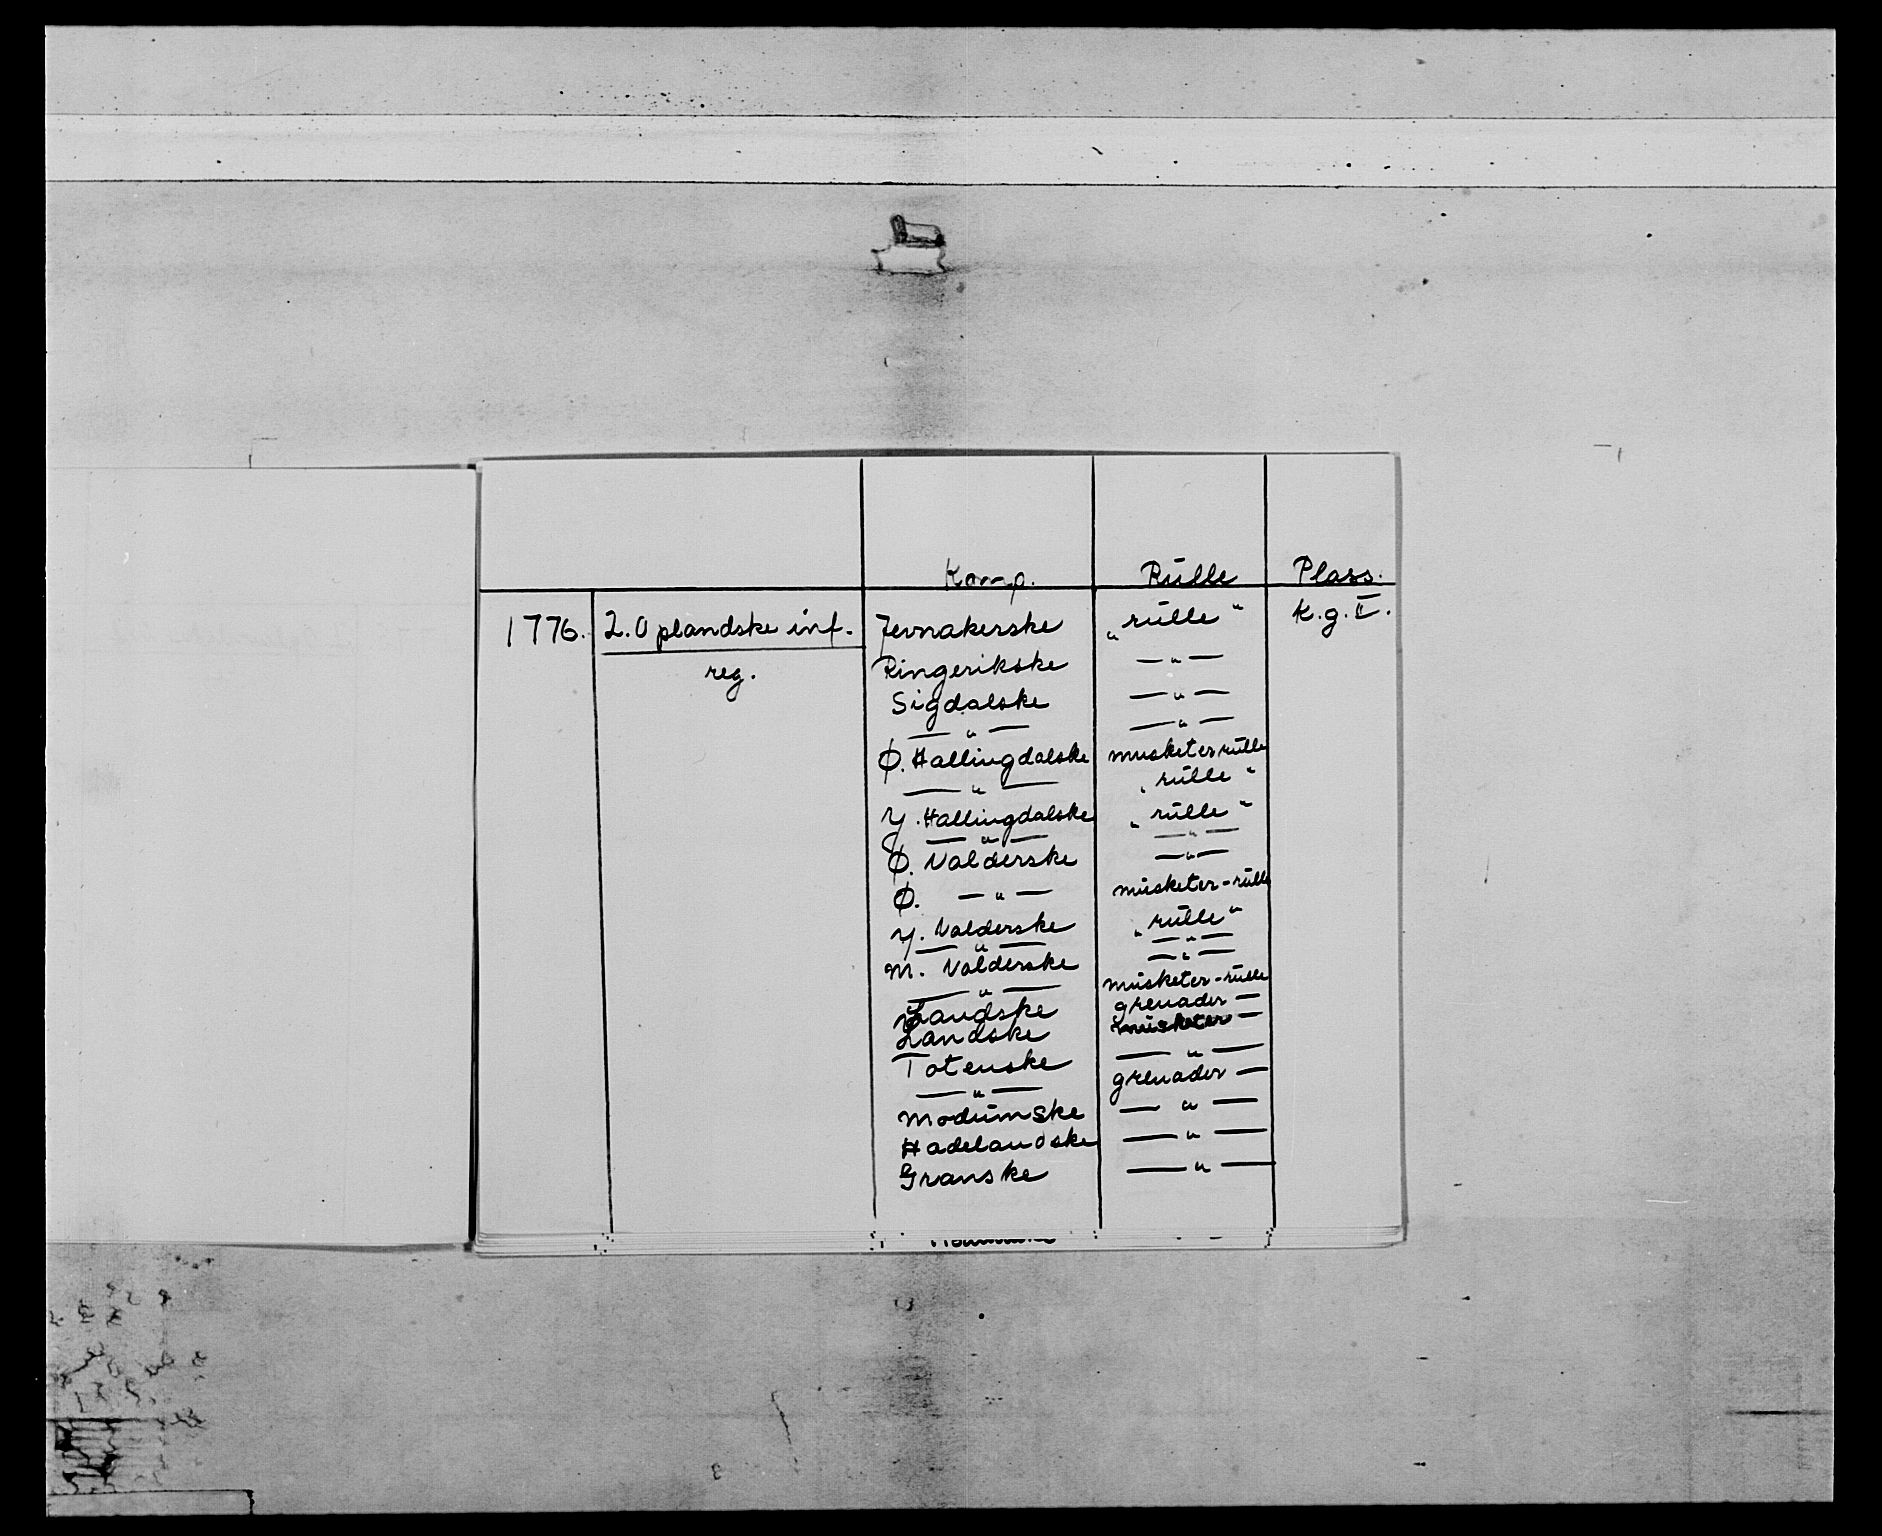 Komp. Rülle Plass.
1776. 2. Oplandske inf. reg. Jevnakerske "rülle" K.g. II.
Ringerikske — " —
Sigdalske — " —
— " — — " —
Ø. Hallingdalske musketer rülle
— " — "rülle"
Y. Hallingdalske "rülle"
— " — — " —
Ø. Valderske — " —
Ø. — " — müsketer-rülle
Y. Valderske "rülle"
— " — — " —
M. Valderske — " —
— " — müsketer-rülle
Landske grenader —
Landske müsketer —
Totenske — " —
— " — grenader —
Modümske — " —
Hadelandske — " —
Granske — " —